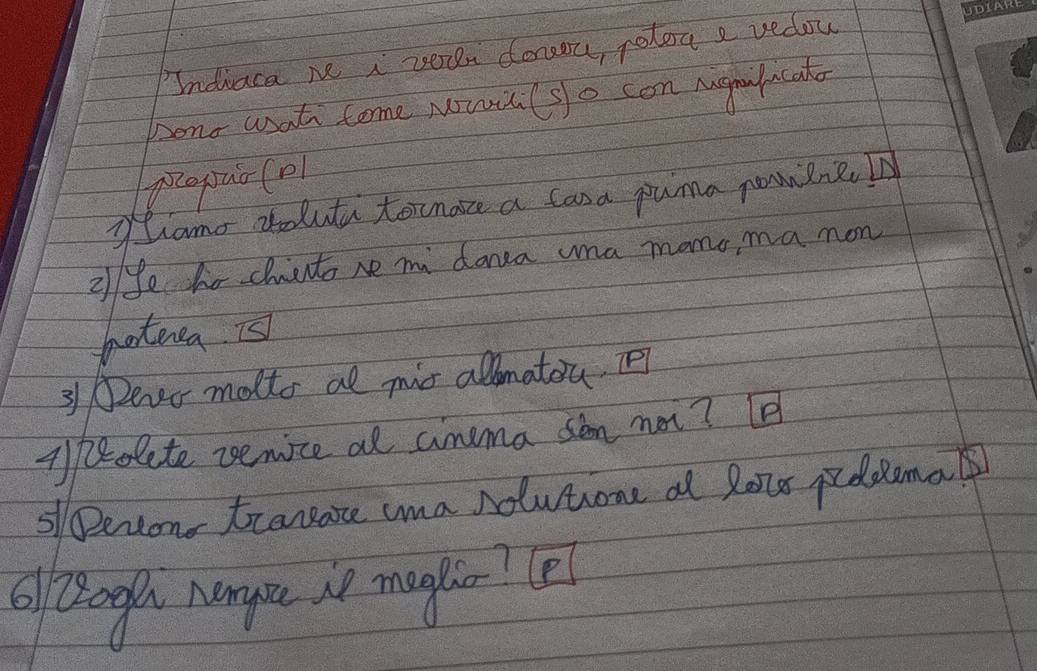 UDIARE
Indiaca se i verbi dovere, potere e vedere
sono usati come servili (s) o con significato
proprio (p)
1) Siamo voluti tornare a casa prima possibile.
2) Le ho chiesto se mi danea una mano, ma non
poterea. S
3) Devo molto al mio allenatore. P
4) Volete venire al cinema con noi? P
5) Devono trovare una soluzione al loro problema. S
6) Vogli sempre il meglio? P